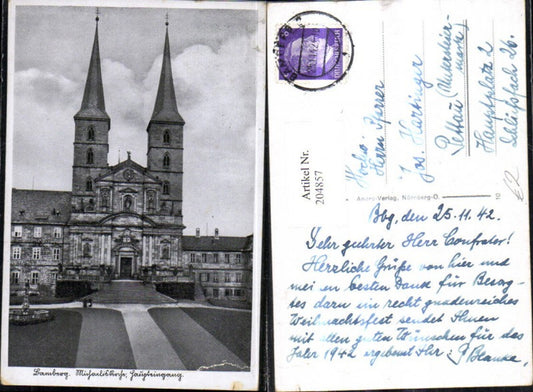 Bamberg. Michaelskirche, Haupteingang.
Artikel Nr.
204857
Herrn Pfarrer
Jos. Hartinger
Pettau (Untersteier-
mark)
Hauptplatz 2
Andro-Verlag, Nürnberg-O.
Bbg, den 25. 11. 42.
Sehr geehrter Herr Confrater!
Herzliche Grüße von hier und
mei en besten Dank für Besorg-
tes dazu ein recht gnadenreiches
Weihnachtsfest sendet Ihnen
mit allen guten Wünschen für das
Jahr 1942 ergebenst Ihr: